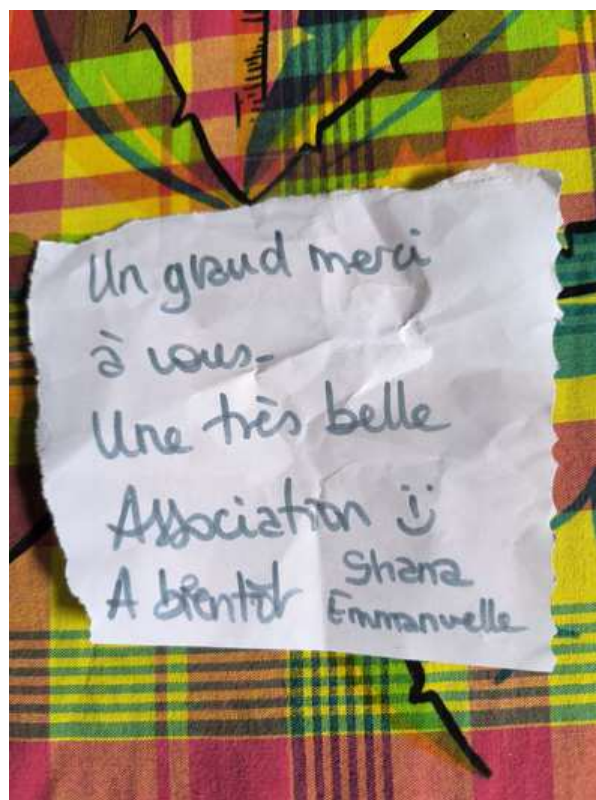 Un grand merci
à vous-
Une très belle
Association ü
A bientôt Shana
Emmanuelle